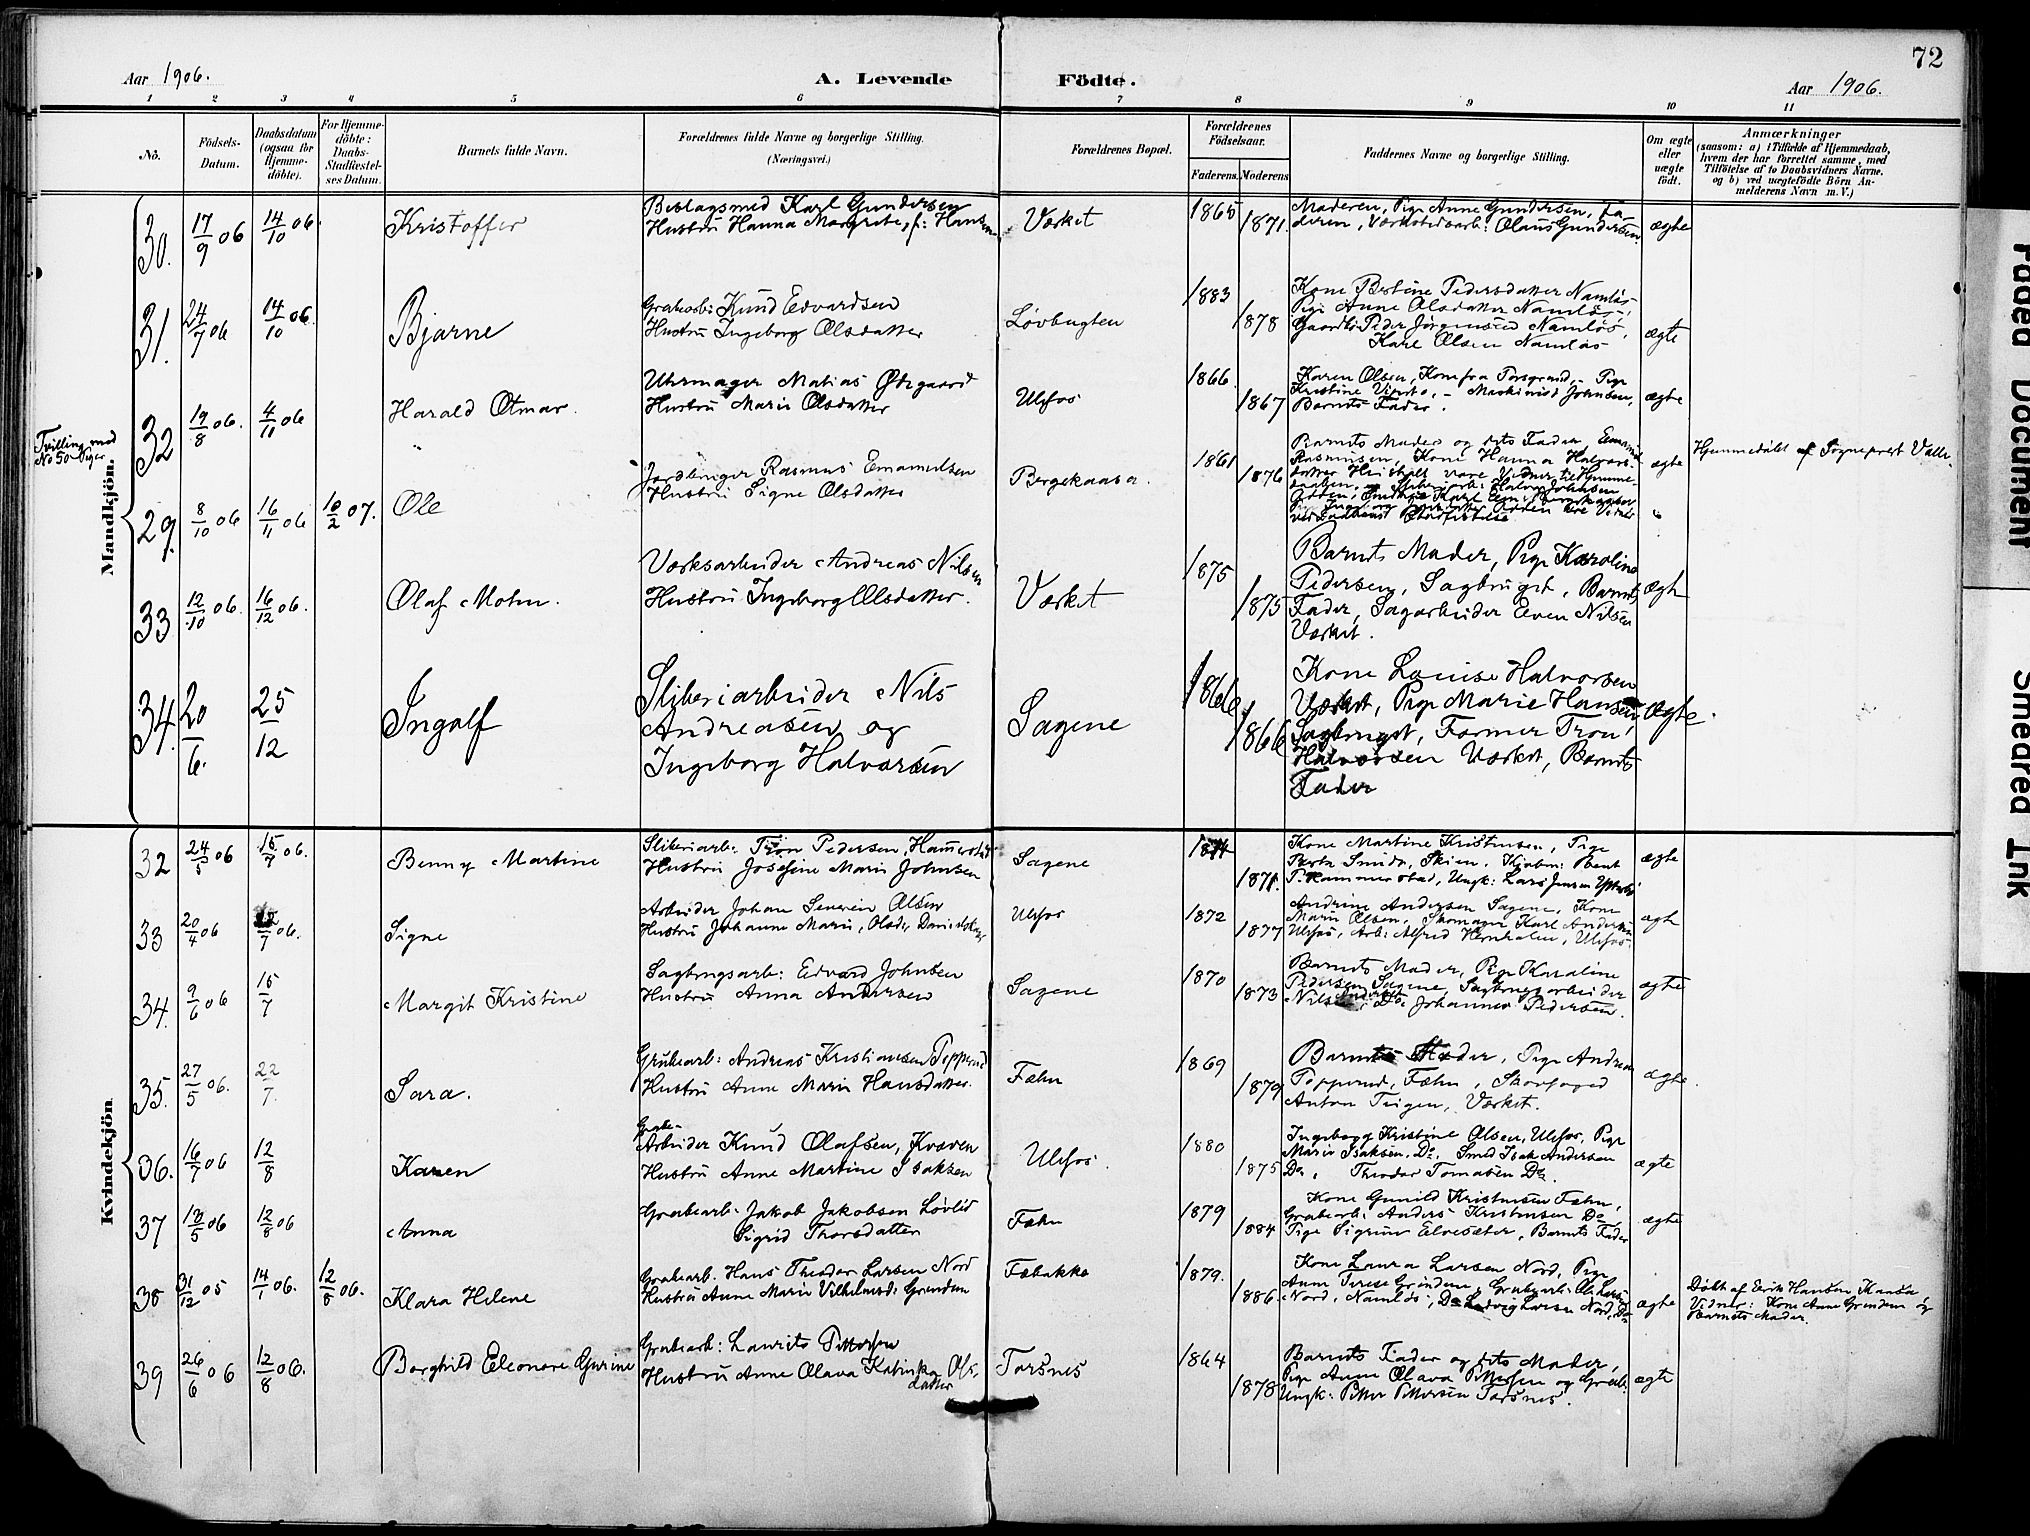 72
Aar 1906.
A. Levende Födte.
Aar 1906.
1 2 3 4 5 6 7 8 9 10 11
No.
Födsels-
Datum.
Daabsdatum
(ogsaa for
Hjemme-
döbte).
For Hjemme-
döbte:
Daabs-
Stadfæstel-
ses Datum.
Barnets fulde Navn.
Forældrenes fulde Navne og borgerlige Stilling.
(Næringsvei.)
Forældrenes Bopæl.
Forældrenes
Födselsaar.
Faderens. Moderens
Faddernes Navne og borgerlige Stilling.
Om ægte
eller
uægte
födt.
Anmærkninger
(saasom: a) i Tilfælde af Hjemmedaab,
hvem der har forrettet samme, med
Tilföielse af to Daabsvidners Navne,
og b) ved uægtefödte Börn An-
melderens Navn m. V.)
Mandkjön.
30. 17/9 06 14/10 06. Kristoffer
Karl Gundersen
Hustru Hanna Margrete, f: Hansen
Værket
1865 1871.
Moderen, Pige Anne Gundersen, Fa-
deren, Værkstedsarb: Olaus Gundersen.
ægte
31. 24/7 06 14/10 06. Bjarne
Grubearb: Knud Edvardsen
Hustru Ingeborg Olsdatter
Løvbugten
1883 1878
Kone Bertine Pedersdatter Namløs,
Pige Anne Olsdatter Namløs,
Gaardbr: Peder Jørgensen Namløs,
Karl Olsen Namløs
ægte
32 19/8 06. 4/11 06 Harald Otmar.
Uhrmager Matias Ødegaard
Hustru Marie Olsdatter
Ulefos
1866. 1867
Karen Olsen, Kone fra Porsgrund, Pige
Kristine - Maskinist Johnsen,
Barnets Fader.
ægte
Tvilling med
No 50 Piger
29. 8/10 06 16/11 06 10/2 07. Ole
Jordbruger Rasmus Emanuelsen
Hustru Signe Olsdatter
Bergekaasa.
1861 1876
Barnets Moder og dets Fader, Emanuel
Rasmussen, Kone Hanna Halvors-
datter
ægte
Hjemmedøbt af Sogneprest
33 12/10 06. 16/12 06. Olaf Molm.
Værksarbeider Andreas Nilsen
Hustru Ingeborg Olsdatter.
Værket
1875 1875
Barnets Moder, Pige Karoline
Pedersen, Sagbruget, Barnets
Fader, Sagarbeider Even Nilsen
Værket.
ægte
34. 20/6. 25/12 Ingolf
Sliberiarbeider Nils
Andreasen og
Ingeborg Halvorsen
Sagene
1866. 1866
Kone Louise Halvorsen
Værket, Pige Marie Hansen
Sagbruget, Former Tron
Halvorsen Værket, Barnets
Fader
ægte.
Kvindekjön
32 24/5 06 15/7 06. Benny Martine
Sliberiarb: Tron Pedersen, Hammerstad
Hustru Josefine Marie Johnsen
Sagene
1871.
Kone Martine Kristensen, Pige
Berta Smide, Skien, Kjøbm: Bent
P. Hammerstad, Ungk: Lars Jensen
ægte
33 20/4 06 /7 06. Signe
Arbeider Johan Severin Olsen
Hustru Johanne Marie,
Ulefos
1872 1877
Andrine Andersen Sagene, Kone
Marie Olsen, Skomager Karl Andersen
Ulefos, Arb: Alfred Ulefos.
ægte
34. 9/6 06 15/7 Margit Kristine
Sagbrugsarb: Edvard Johnsen
Hustru Anna Andersen
Sagene
1870 1873
Barnets Moder, Pige Karoline
Pedersen Sagene, Sagbrugsarbeider
Nils Do. Johannes Pedersen.
ægte
35. 27/5 06. 22/7. Sara.
Grubearb: Andreas Kristiansen Tepperud
Hustru Anne Marie Hansdatter.
Fæhn
1869 1879
Barnets Moder, Pige Andrea
Tepperud, Fæhn, Skovfoged
Anton Teigen, Værket.
ægte.
36. 16/7 06 12/8 Karen
Grube-
Arbeider Knud Olafsen, Kvæven
Hustru Anne Martine Isaksen
Ulefos.
1880 1875
Ingeborg Kristine Olsen, Ulefos, Pige
Marie Isaksen, Do. Smed Isak Andersen
Do, Theodor Tomasen Do.
ægte
37 13/5 06 12/8 06 Anna
Grubearb: Jakob Jakobsen Løvlid
Sigrid Thorsdatter
Fæhn
1879 1884
Kone Gunild Kristensen Fæhn,
Grubearb: Anders Kristensen Do
Pige Sigrun Elvesæter, Barnets Fader
ægte
38 31/12 05 14/1 06. 12/8 06. Klara Helene
Grubearb. Hans Theodor Larsen Nord
Hustru Anne Marie Vilhelmsd: Grønden
Fæbakke
1879. 1886.
Kone Laura Larsen Nord, Pige
Anne Terese Grinden, Grubearb: Ole Larsen
Nord, Namløs, Do. Ludvig Larsen Nord, Do
ægte
Døbt af Eirik Hansen Kaasa
Vidner: Kone Anne Grønden og
Barnets Moder.
39 26/6 06 12/8 06. Borghild Eleonore Gurine
Grubearb: Laurits Pettersen
Hustru Anne Olava Katinka Ols-
datter
Torsnes
1864 1878
Barnets Fader og dets Moder,
Pige Anne Olava Pettersen og Grub:
Ungk: Petter Pettersen Torsnes.
ægte
Faded Document
Smeared Ink